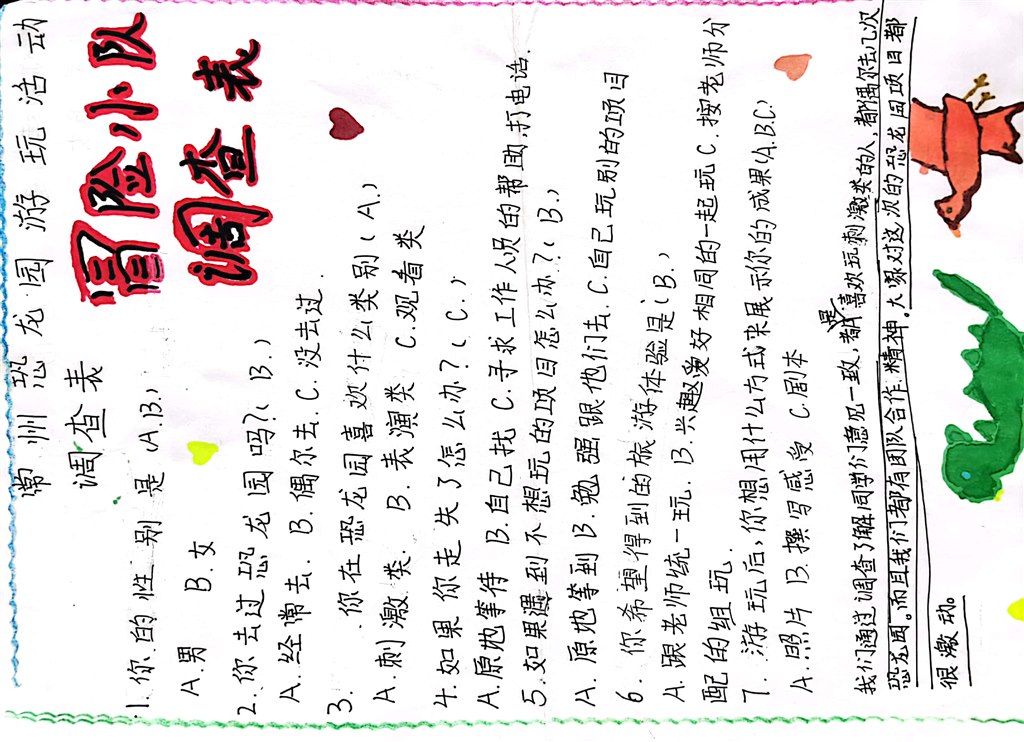 常州恐龙园游玩活动
调查表
冒险小队
调查表
1.你的性别是(A.B.)
A.男 B.女
2.你去过恐龙园吗?(B.)
A.经常去. B.偶尔去.C.没去过.
3. 你在恐龙园喜欢什么类别(A.)
A.刺激类. B.表演类 C.观看类
4.如果你走失了怎么办?(C.)
A.原地等待 B.自己找 C.寻求工作人员的帮助,打电话.
5.如果遇到不想玩的项目怎么办?(B.)
A.原地等到 B.勉强跟他们去.C.自己玩别的项目
6.你希望得到的旅游体验是(B.)
A.跟老师统一玩. B.兴趣爱好相同的一起玩 C.按老师分
配的组玩.
7.游玩后,你想用什么方式来展示你的成果(A.B.C.)
A.照片 B.撰写感受 C.剧本
我们通过调查了解同学们意见一致,都是喜欢玩刺激类的人,都偶尔去几次
恐龙园。而且我们都有团队合作精神。大家对这次的恐龙园项目都
很激动。